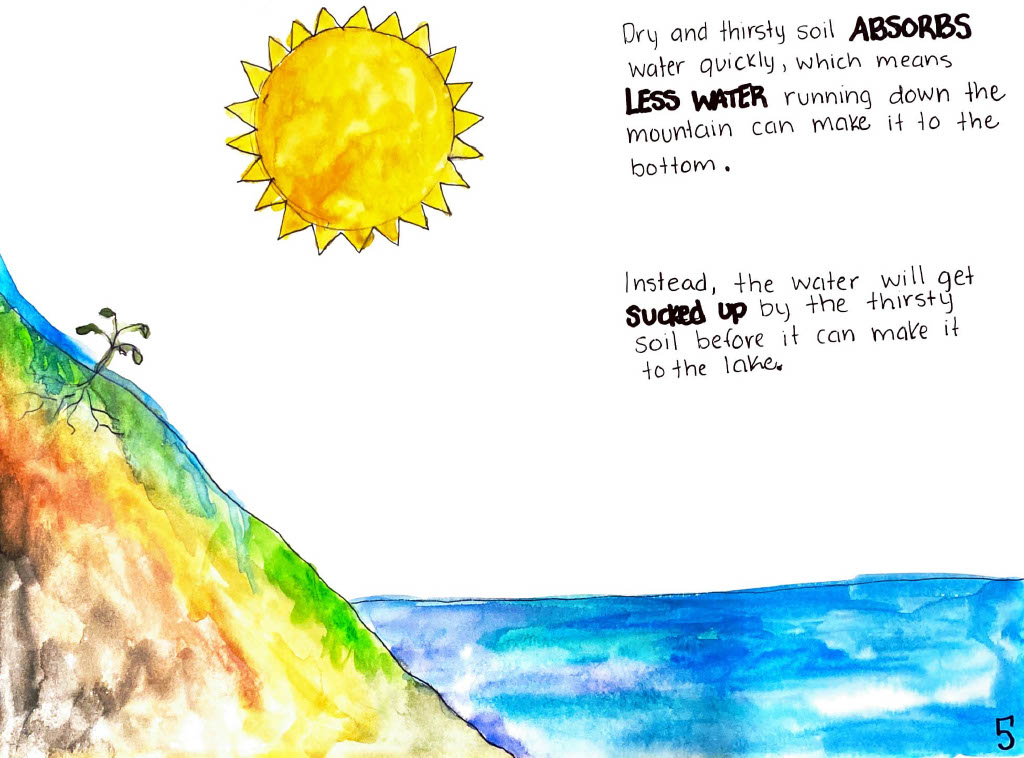 Dry and thirsty soil ABSORBS
water quickly, which means
LESS WATER running down the
mountain can make it to the
bottom.
Instead, the water will get
sucked up by the thirsty
soil before it can make it
to the lake.
5